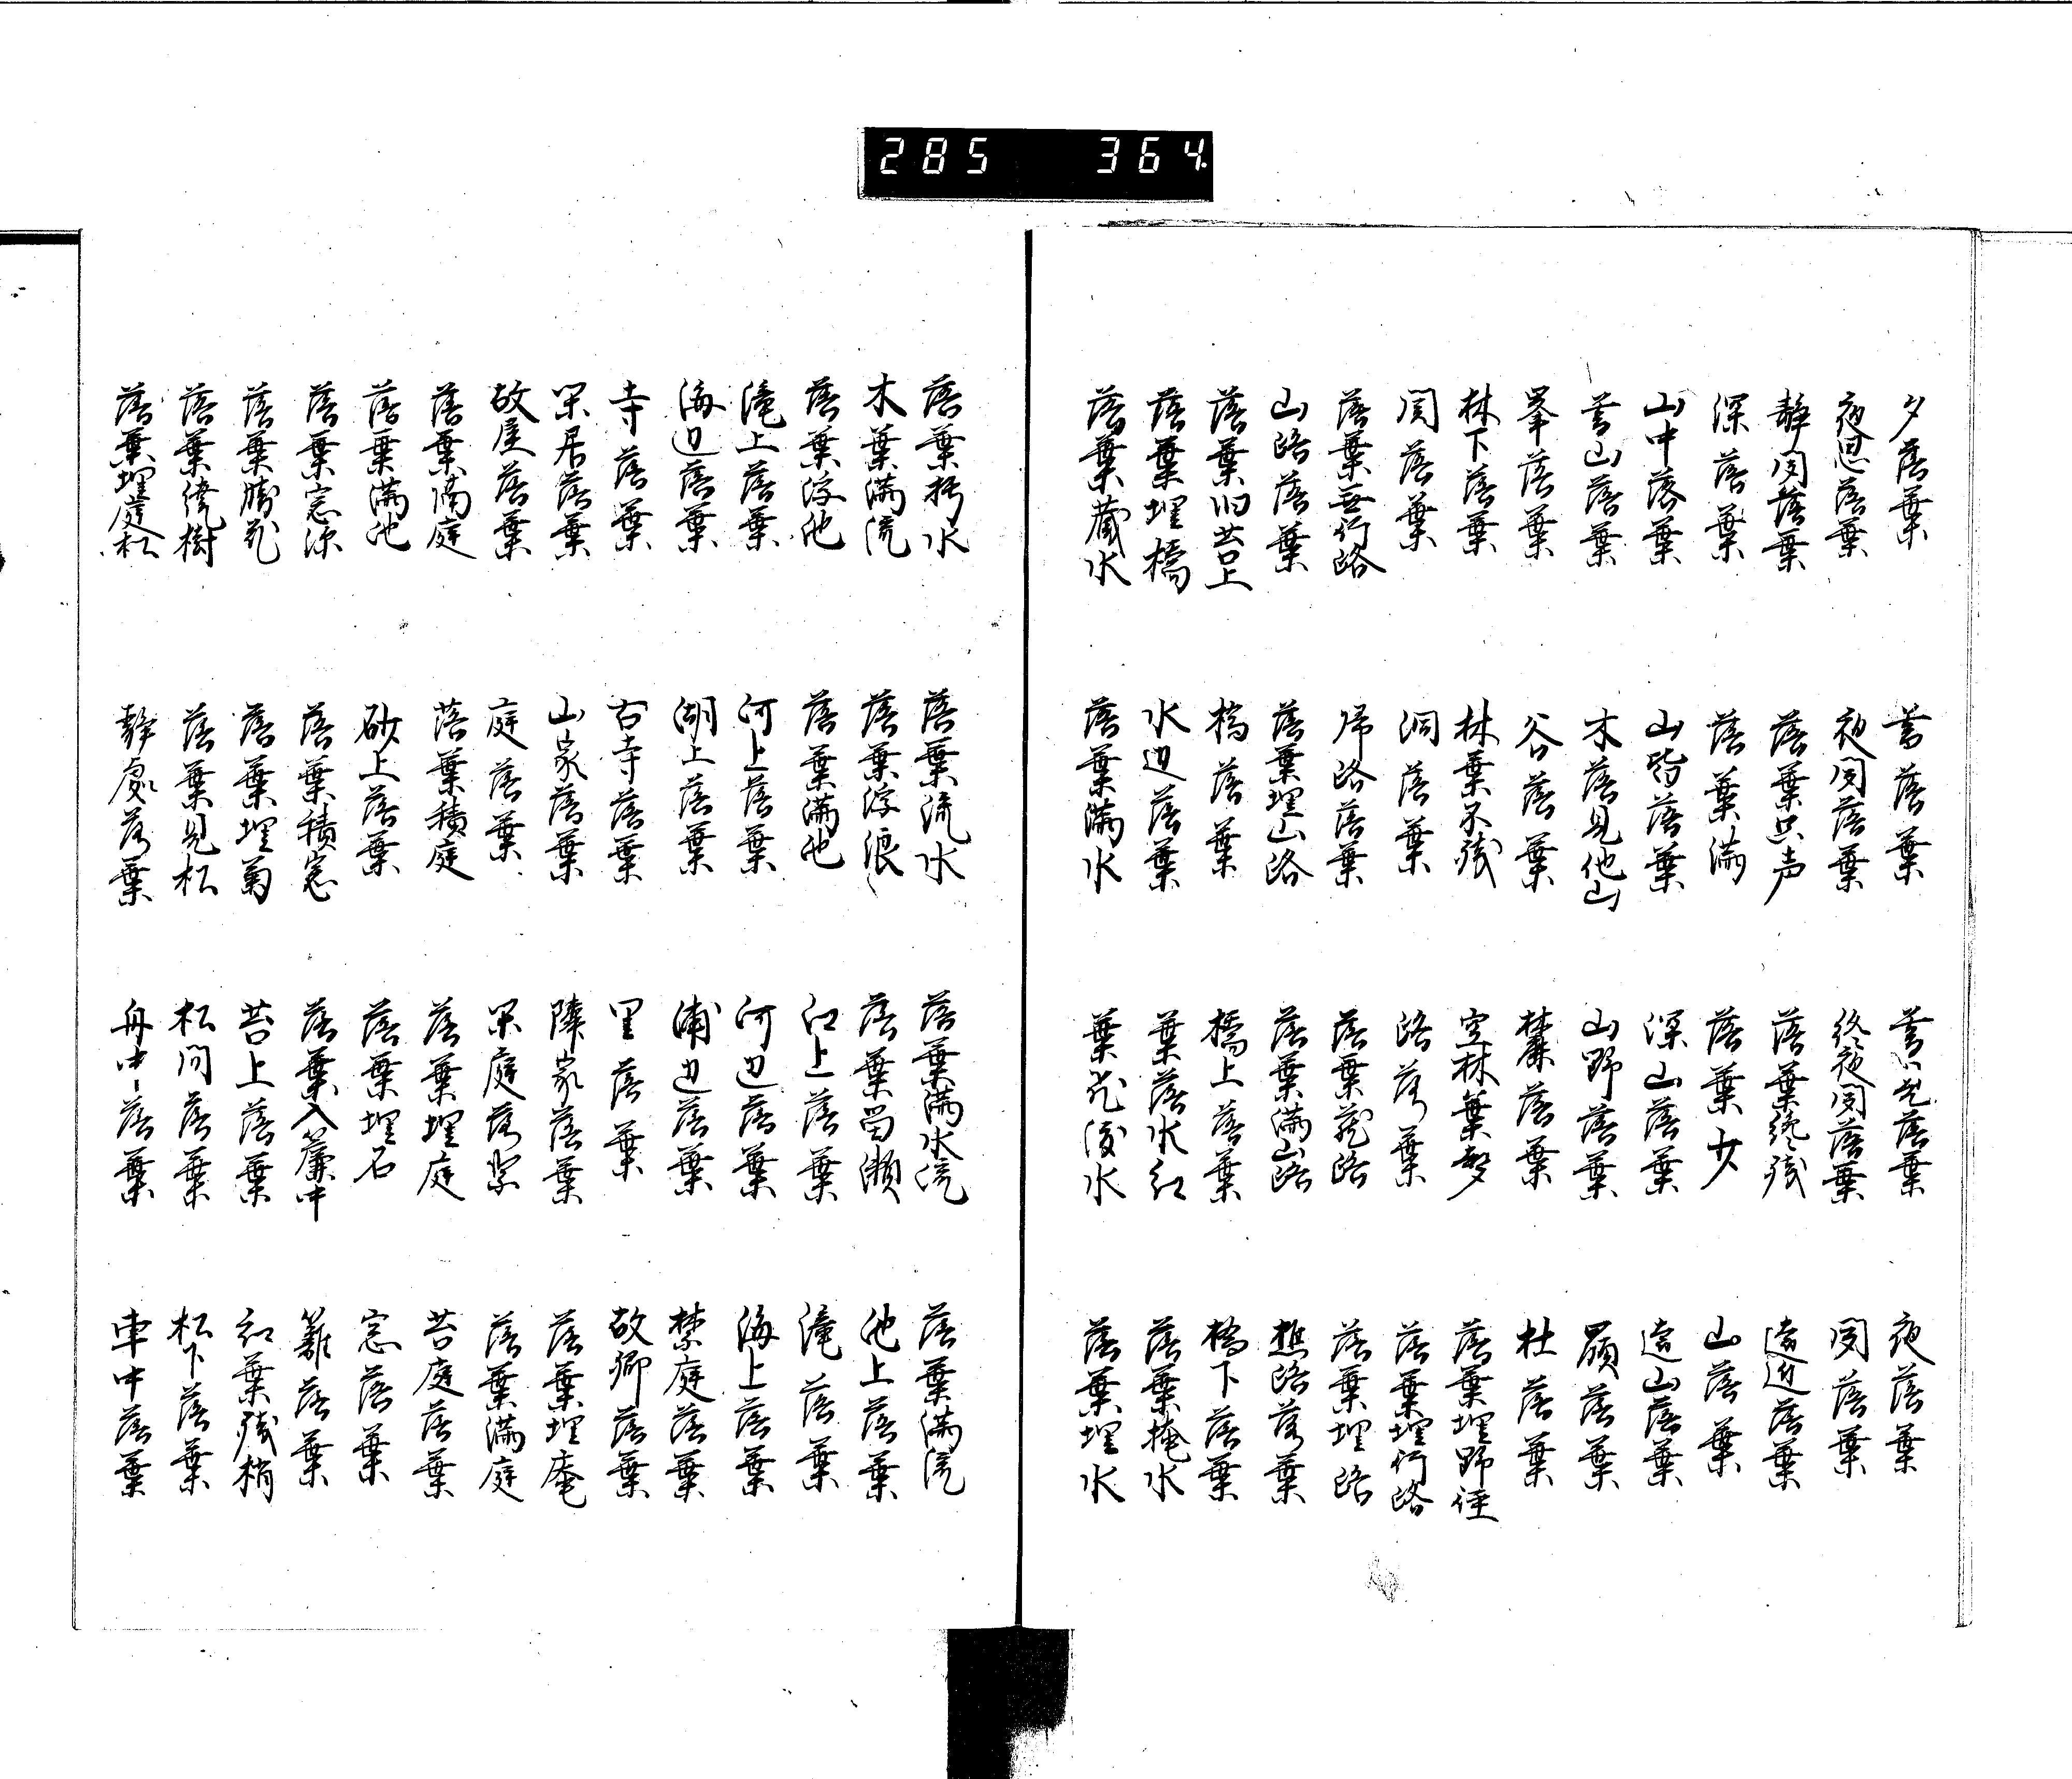 285 364
夕落葉 暮落葉 落葉 夜落葉
夜思落葉 夜聞落葉 終夜聞落葉 聞落葉
静聞落葉 落葉声 落葉纔残 遠近落葉
深落葉 落葉満 落葉少 山落葉
山中落葉 山皆落葉 深山落葉 遠山落葉
暮山落葉 木落見他山 山野落葉 嶺落葉
峯落葉 谷落葉 麓落葉 杜落葉
林下落葉 林葉不残 空林葉声 落葉埋野径
関落葉 洞落葉 路落葉 落葉埋行路
落葉無行路 帰路落葉 落葉蔵路 落葉埋路
山路落葉 落葉埋山路 落葉満山路 樵路落葉
落葉旧苔上 橋落葉 橋上落葉 橋下落葉
落葉埋橋 水辺落葉 葉落水紅 落葉掩水
落葉蔵水 落葉満水 葉飛渡水 落葉埋水
落葉水 落葉流水 落葉満水流 落葉満流
木葉満流 落葉浮浪 落葉留瀬 池上落葉
落葉浮池 落葉満池 江上落葉 滝落葉
滝上落葉 河上落葉 河辺落葉 海上落葉
海辺落葉 湖上落葉 浦辺落葉 禁庭落葉
寺落葉 古寺落葉 里落葉 故郷落葉
閑居落葉 山家落葉 隣家落葉 落葉埋庵
故屋落葉 庭落葉 閑庭落葉 落葉満庭
落葉満庭 落葉積庭 落葉埋庭 苔庭落葉
落葉満池 砂上落葉 落葉埋石 窓落葉
落葉窓深 落葉積窓 落葉入簾中 籬落葉
落葉勝花 落葉埋菊 苔上落葉 紅葉残梢
落葉繞樹 落葉見松 松間落葉 松下落葉
落葉埋庭松 静處落葉 舟中落葉 車中落葉